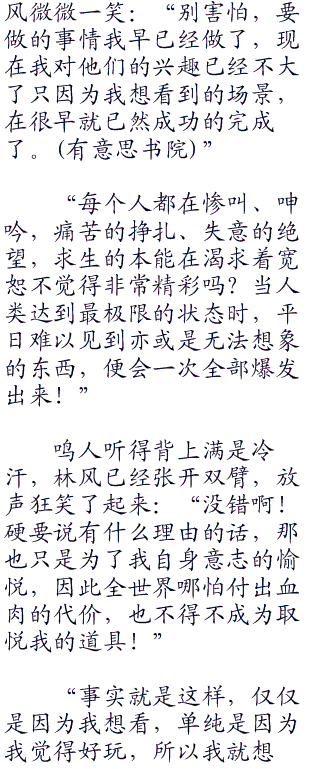 风微微一笑：“别害怕，要
做的事情我早已经做了，现
在我对他们的兴趣已经不大
了只因为我想看到的场景，
在很早就已然成功的完成
了。(有意思书院)”
“每个人都在惨叫、呻
吟，痛苦的挣扎、失意的绝
望，求生的本能在渴求着宽
恕不觉得非常精彩吗？当人
类达到最极限的状态时，平
日难以见到亦或是无法想象
的东西，便会一次全部爆发
出来！”
鸣人听得背上满是冷
汗，林风已经张开双臂，放
声狂笑了起来：“没错啊！
硬要说有什么理由的话，那
也只是为了我自身意志的愉
悦，因此全世界哪怕付出血
肉的代价，也不得不成为取
悦我的道具！”
“事实就是这样，仅仅
是因为我想看，单纯是因为
我觉得好玩，所以我就想